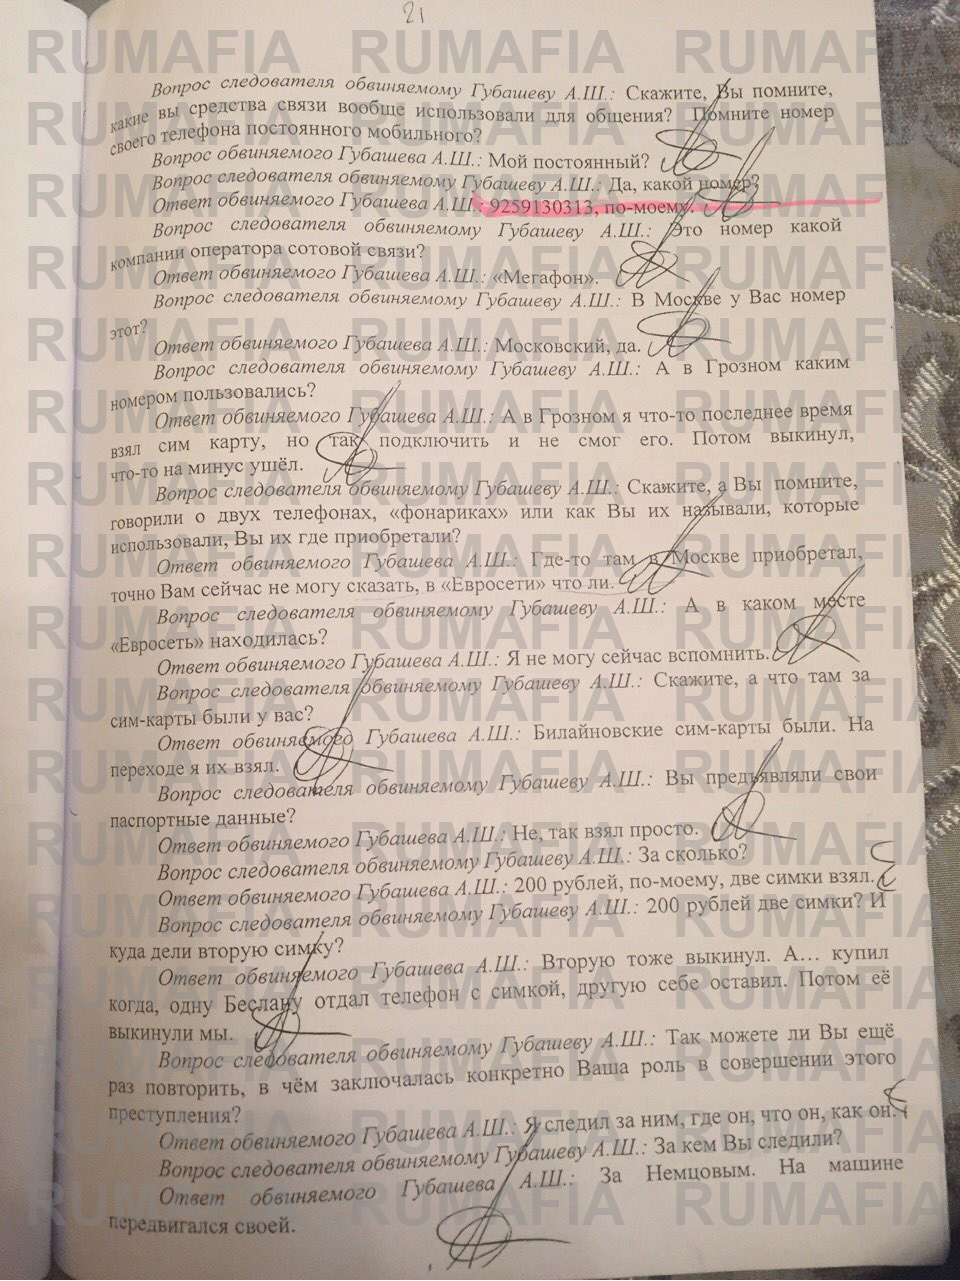 21
Вопрос следователя обвиняемому Губашеву А.Ш.: Скажите, Вы помните,
какие вы средства связи вообще использовали для общения? Помните номер
своего телефона постоянного мобильного?
Вопрос обвиняемого Губашева А.Ш.: Мой постоянный?
Вопрос следователя обвиняемому Губашеву А.Ш.: Да, какой номер?
Ответ обвиняемого Губашева А.Ш.: 9259130313, по-моему.
Вопрос следователя обвиняемому Губашеву А.Ш.: Это номер какой
компании оператора сотовой связи?
Ответ обвиняемого Губашева А.Ш.: «Мегафон».
Вопрос следователя обвиняемому Губашеву А.Ш.: В Москве у Вас номер
этот?
Ответ обвиняемого Губашева А.Ш.: Московский, да.
Вопрос следователя обвиняемому Губашеву А.Ш.: А в Грозном каким
номером пользовались?
Ответ обвиняемого Губашева А.Ш.: А в Грозном я что-то последнее время
взял сим карту, но так подключить и не смог его. Потом выкинул,
что-то на минус ушёл.
Вопрос следователя обвиняемому Губашеву А.Ш.: Скажите, а Вы помните,
говорили о двух телефонах, «фонариках» или как Вы их называли, которые
использовали, Вы их где приобретали?
Ответ обвиняемого Губашева А.Ш.: Где-то там в Москве приобретал,
точно Вам сейчас не могу сказать, в «Евросети» что ли.
Вопрос следователя обвиняемому Губашеву А.Ш.: А в каком месте
«Евросеть» находилась?
Ответ обвиняемого Губашева А.Ш.: Я не могу сейчас вспомнить.
Вопрос следователя обвиняемому Губашеву А.Ш.: Скажите, а что там за
сим-карты были у вас?
Ответ обвиняемого Губашева А.Ш.: Билайновские сим-карты были. На
переходе я их взял.
Вопрос следователя обвиняемому Губашеву А.Ш.: Вы предъявляли свои
паспортные данные?
Ответ обвиняемого Губашева А.Ш.: Не, так взял просто.
Вопрос следователя обвиняемому Губашеву А.Ш.: За сколько?
Ответ обвиняемого Губашева А.Ш.: 200 рублей, по-моему, две симки взял.
Вопрос следователя обвиняемому Губашеву А.Ш.: 200 рублей две симки? И
куда дели вторую симку?
Ответ обвиняемого Губашева А.Ш.: Вторую тоже выкинул. А… купил
когда, одну Беслану отдал телефон с симкой, другую себе оставил. Потом её
выкинули мы.
Вопрос следователя обвиняемому Губашеву А.Ш.: Так можете ли Вы ещё
раз повторить, в чём заключалась конкретно Ваша роль в совершении этого
преступления?
Ответ обвиняемого Губашева А.Ш.: Я следил за ним, где он, что он, как он.
Вопрос следователя обвиняемому Губашеву А.Ш.: За кем Вы следили?
Ответ обвиняемого Губашева А.Ш.: За Немцовым. На машине
передвигался своей.